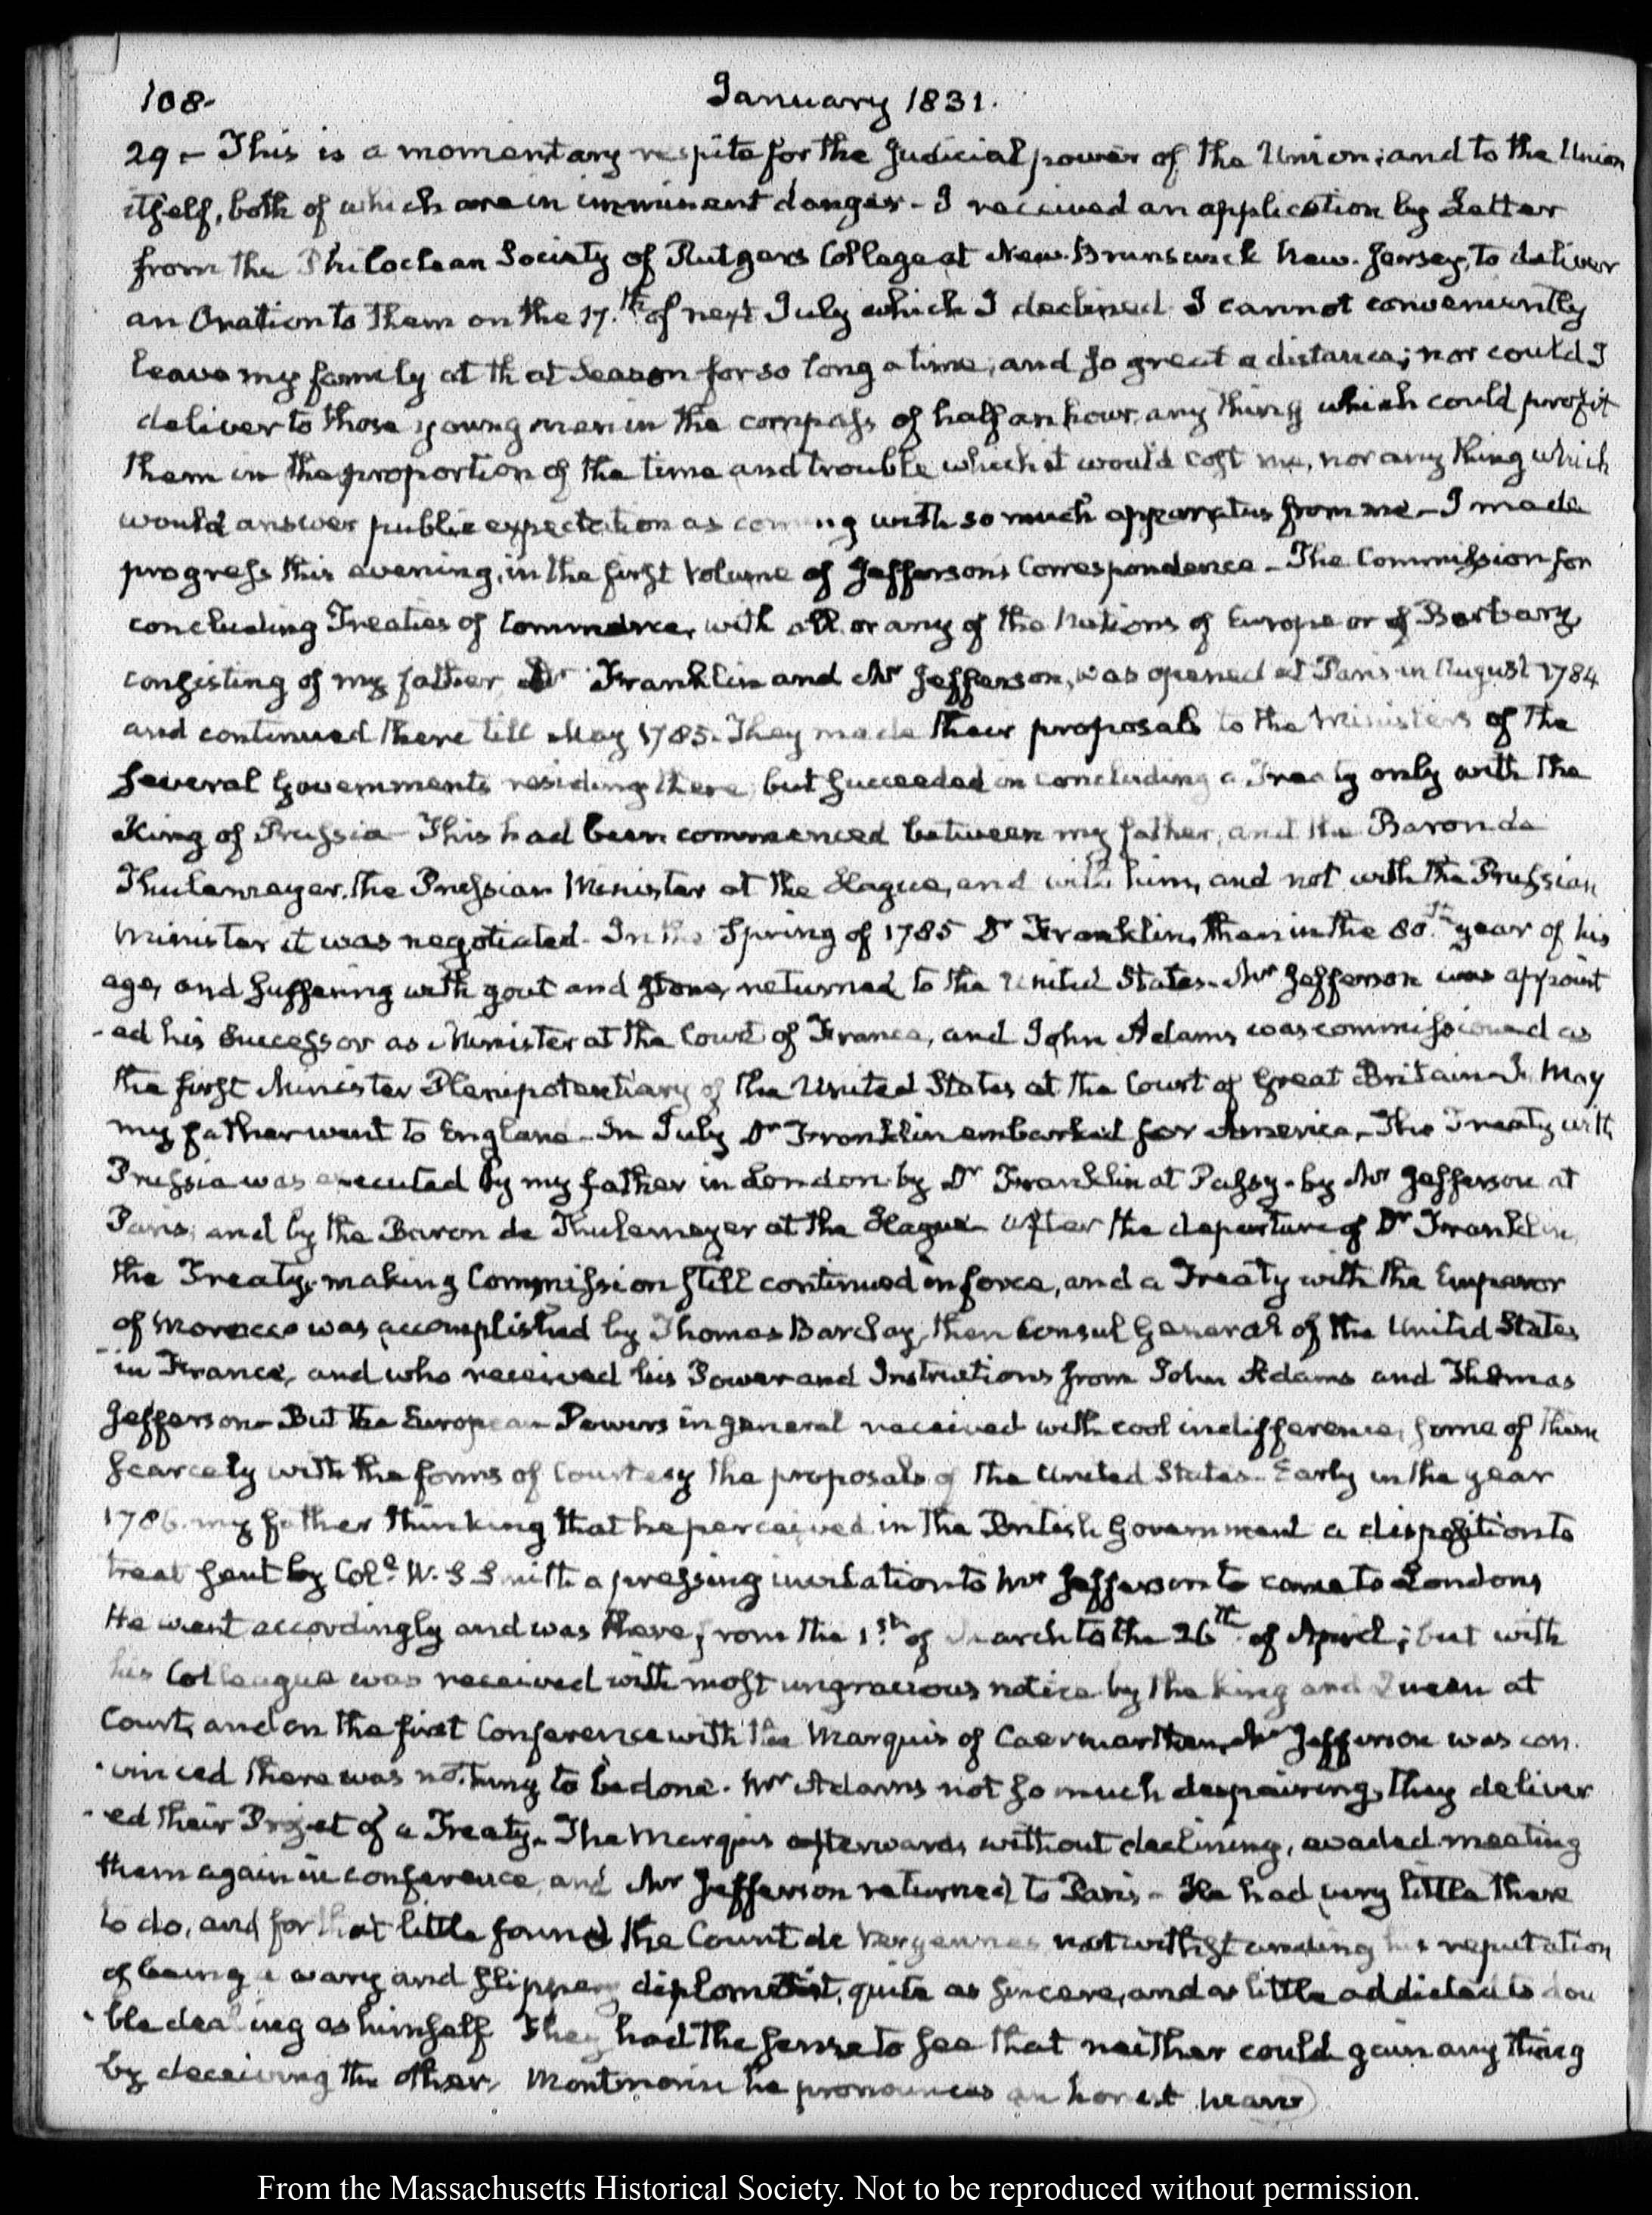 108-
January 1831.
29 - This is a momentary respite for the Judicial power of the Union; and to the Union
itself, both of which are in imminent danger - I received an application by Letter
from the Philoclean Society of Rutgers College at New-Brunswick New-Jersey, to deliver
an Oration to them on the 17.th of next July which I declined. I cannot conveniently
leave my family at that Season for so long a time, and so great a distance; nor could I
deliver to those young men in the compass of half an hour, any thing which could profit
them in the proportion of the time and trouble which it would cost me, nor any thing which
would answer public expectation as coming with so much apparatus from me - I made
progress this evening, in the first Volume of Jefferson's Correspondence - The Commission for
concluding Treaties of Commerce, with all or any of the Nations of Europe or of Barbary,
consisting of my father Dr Franklin and Mr Jefferson, was opened at Paris in August 1784
and continued there till May 1785. They made their proposals to the Ministers of the
several Governments residing there, but succeeded in concluding a Treaty only with the
King of Prussia - This had been commenced between my father, and the Baron de
Thulemeyer, the Prussian Minister at the Hague, and with him, and not with the Prussian
Minister it was negotiated. In the Spring of 1785 Dr Franklin, then in the 80.th year of his
age, and suffering with gout and stone, returned to the United States. Mr Jefferson was appoint
-ed his Successor as Minister at the Court of France, and John Adams was commissioned as
the first Minister Plenipotentiary of the United States at the Court of Great Britain - In May
my father went to England - In July Dr Franklin embarked for America, - The Treaty with
Prussia was executed by my father in London - by Dr Franklin at Passy - by Mr Jefferson at
Paris; and by the Baron de Thulemeyer at the Hague - After the departure of Dr Franklin,
the Treaty-making Commission still continued in force, and a Treaty with the Emperor
of Morocco was accomplished by Thomas Barclay, then Consul General of the United States
in France, and who received his Power and Instructions from John Adams and Thomas
Jefferson - But the European Powers in general received with cool indifference, some of them
scarcely with the forms of Courtesy the proposals of the United States. Early in the year
1786. my father thinking that he perceived in the British Government a disposition to
treat sent by Col.l W. S Smith a pressing invitation to Mr Jefferson to come to London,
He went accordingly and was there, from the 1.st of March to the 26.th of April; but with
his Colleague was received with most ungracious notice by the King and Queen at
Court, and on the first Conference with the Marquis of Caermarthen, Mr Jefferson was con-
-vinced there was nothing to be done. Mr Adams not so much despairing, they deliver
-ed their Projet of a Treaty. The Marquis afterwards without declining, evaded meeting
them again in conference, and Mr Jefferson returned to Paris - He had very little there
to do, and for that little found the Count de Vergennes notwithstanding his reputation
of being a wary and slippery diplomatist, quite as sincere, and as little addicted to dou
-ble dealing as himself. They had the sense to see that neither could gain any thing
by deceiving the other. Montmorin he pronounces an honest
From the Massachusetts Historical Society. Not to be reproduced without permission.